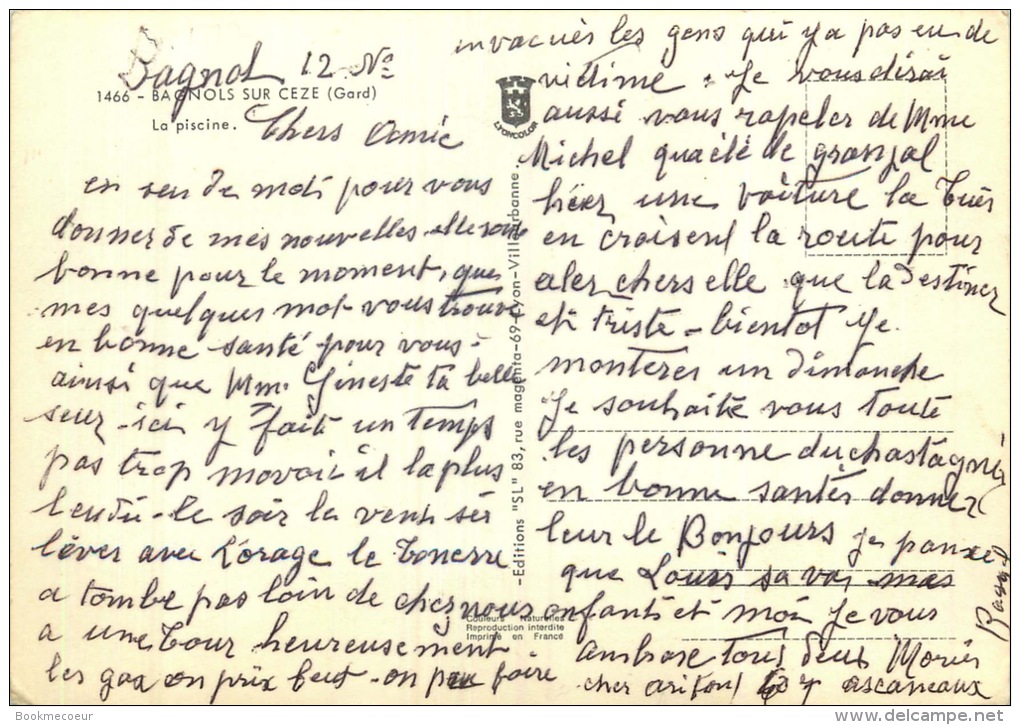 Bagnol 12 N°
1466 - BAGNOLS SUR CEZE (Gard)
La piscine.
Chers Amie
en seu de mots pour vous
donner de mes nouvelles. elle sont
bonne pour le moment, que
mes quelques mot vous trouve
en bonne santé pour vous
ainsi que Mm. Gineste ta belle
seur - ici y fait un temps
pas trop movais il la plus
lendu - le soir la vent sés
léver avec l'orage le tonerre
a tombe pas loin de chez nous
a une tour heureusement
les gas on prix feut - on peu faire
LYONCOLOR
-Editions "SL" 83, rue magenta-69-Lyon-Villeurbanne.
Couleurs Naturelles
Reproduction interdite
Imprimé en France
envacuér les gens qui y a pas eu de
victime. Je vous dirai
aussi vous rapeler de Mme
Michel qua été de granjal
hier une voiture la tués
en croisent la route pour
aler chers elle que la destiner
et triste - bientot Je
monterer un dimanche
Je souhaite vous toute
les personne du chastagnier
en bonne santér donner
leur le Bonjours je panse
que Louis sa va mes
enfants et moi Je vous
ambrase tous deux